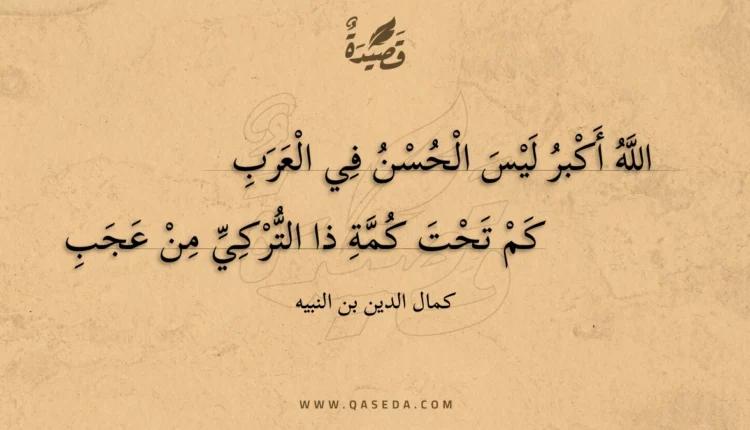 قَصِيدَةٌ
اللَّهُ أَكْبَرُ لَيْسَ الْحُسْنُ فِي الْعَرَبِ
كَمْ تَحْتَ كُمَّةِ ذا التُّرْكِيِّ مِنْ عَجَبِ
كمال الدين بن النبيه
WWW.QASEDA.COM